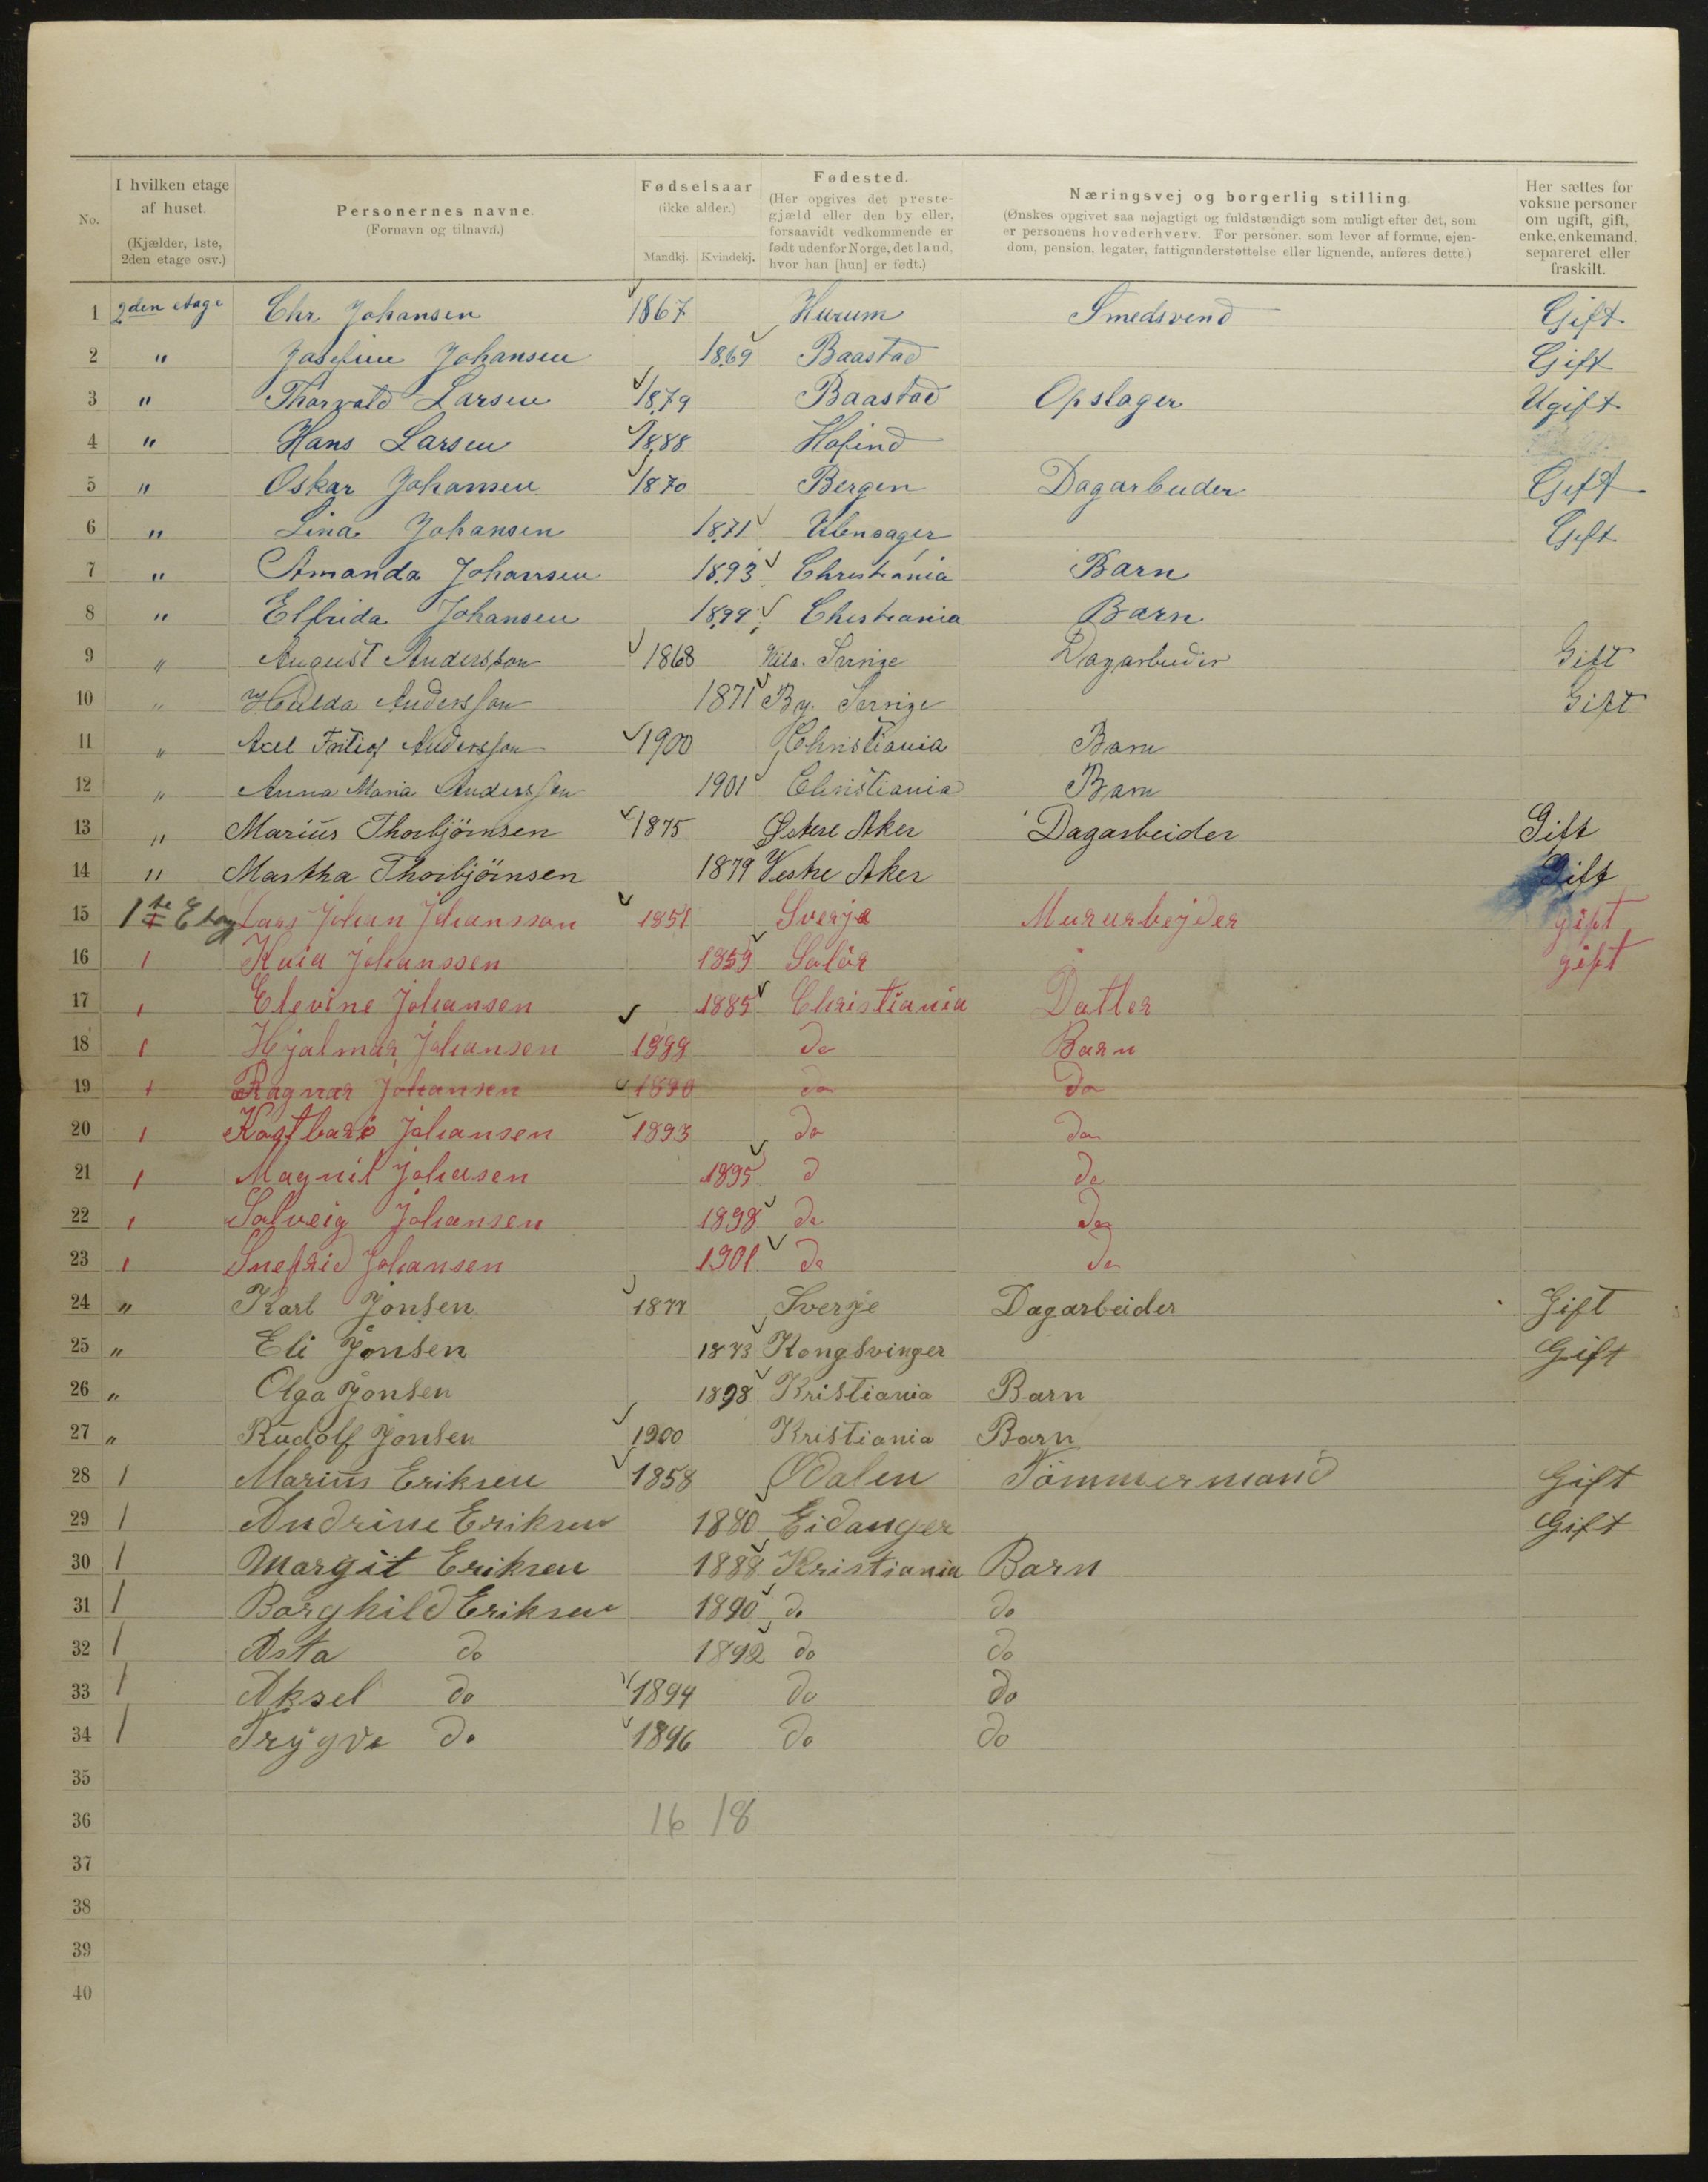 No.
I hvilken etage af huset.
(Kjælder, 1ste, 2den etage osv.)
Personernes navne.
(Fornavn og tilnavn.)
Fødselsaar
(ikke alder.)
Mandkj. Kvindekj.
Fødested.
(Her opgives det prestegjæld eller den by eller, forsaavidt vedkommende er født udenfor Norge, det land, hvor han [hun] er født.)
Næringsvej og borgerlig stilling.
(Ønskes opgivet saa nøjagtigt og fuldstændigt som muligt efter det, som er personens hovederhverv. For personer, som lever af formue, ejendom, pension, legater, fattigunderstøttelse eller lignende, anføres dette.)
Her sættes for voksne personer om ugift, gift, enke, enkemand, separeret eller fraskilt.
1 2den etage Chr. Johansen 1867 Hurum Smedsvend Gift
2 " Josefine Johansen 1869 Baastad Gift
3 " Thorvald Larsen 1879 Baastad Opslager Ugift
4 " Hans Larsen 1888 Høfind
5 " Oskar Johansen 1870 Bergen Dagarbeider Gift
6 " Lina Johansen 1871 Ulensager Gift
7 " Amanda Johansen 1893 Christiania Barn
8 " Elfrida Johansen 1899 Christiania Barn
9 " August Andersson 1868 Kila. Sverige Dagarbeider Gift
10 " Hulda Andersson 1871 By. Sverige Gift
11 " Axel Fritiof Andersson 1900 Christiania Barn
12 " Anna Maria Andersson 1901 Christiania Barn
13 " Marius Thorbjörnsen 1875 Østere Aker Dagarbeider Gift
14 " Martha Thorbjörnsen 1879 Vestre Aker Gift
15 1ste Etag Lars Johan Johansson 1851 Sverje Murarbejder gift
16 " Kaia Johanssen 1859 Solör gift
17 " Elevine Johansen 1885 Christiania Datter
18 " Hjalmar Johansen 1899 do Barn
19 " Ragnar Johansen 1890 do do
20 " Kastbare Johansen 1893 do do
21 " Magnil Johasen 1895 d do
22 " Solveig Johansen 1898 do do
23 " Snefrid Johansen 1901 do do
24 " Karl Jonsen 1877 Sverje Dagarbeider Gift
25 " Eli Jonsen 1873 Kongsvinger Gift
26 " Olga Jonsen 1898 Kristiania Barn
27 " Rudolf Jonsen 1900 Kristiania Barn
28 " Marius Eriksen 1858 Ødalen Tömmermand Gift
29 " Andrine Eriksen 1880 Eidanger Gift
30 " Margit Eriksen 1888 Kristiania Barn
31 " Borghild Eriksen 1890 do do
32 " Asta do 1892 do do
33 " Aksel do 1894 do do
34 " Trygve do 1896 do do
35
36 16 18
37
38
39
40